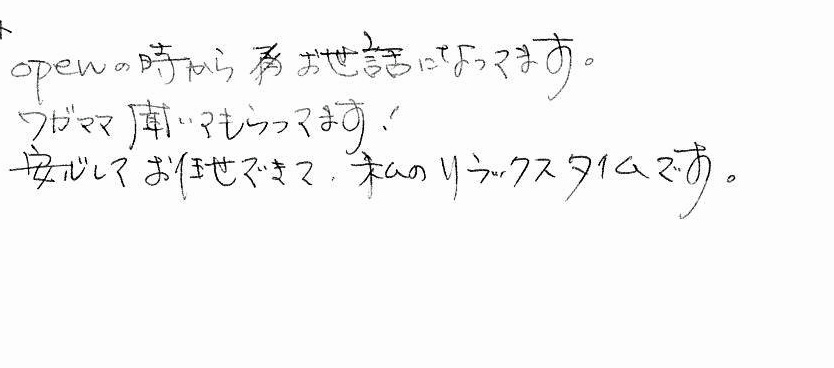 openの時から お世話になってます。
ワガママ聞いてもらってます!
安心してお任せできて、私のリラックスタイムです。